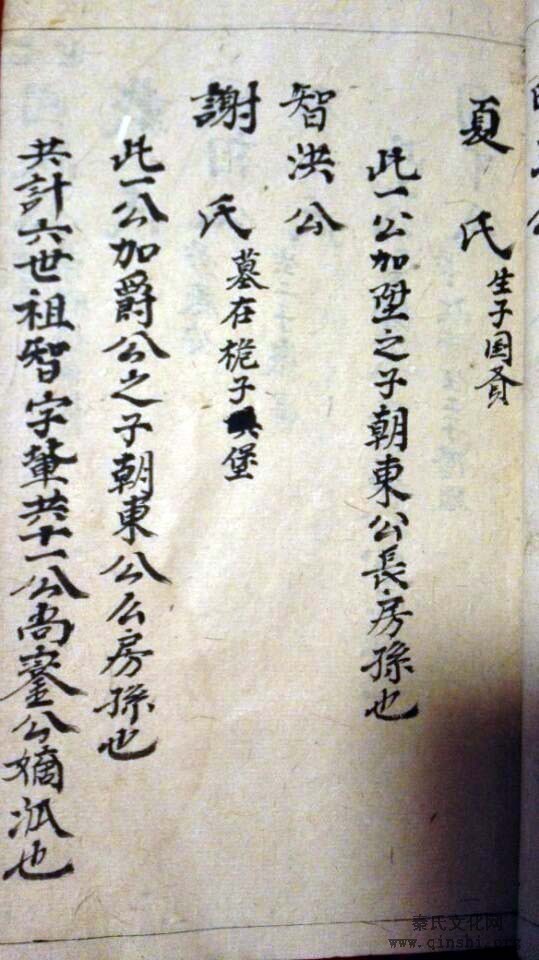 夏氏 生子国賢
此一公加陞之子朝東公長房孫也
智洪公
謝氏 墓在桅子堡
此一公加爵公之子朝東公么房孫也
共計六世祖智字輩共十一公尚公嫡派也
秦氏文化网
www.qinshi.org